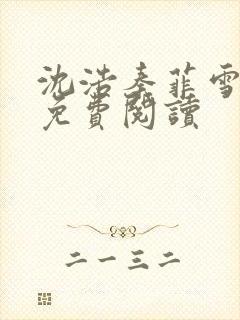 沈浩秦菲雪
免費閱讀
二一三二